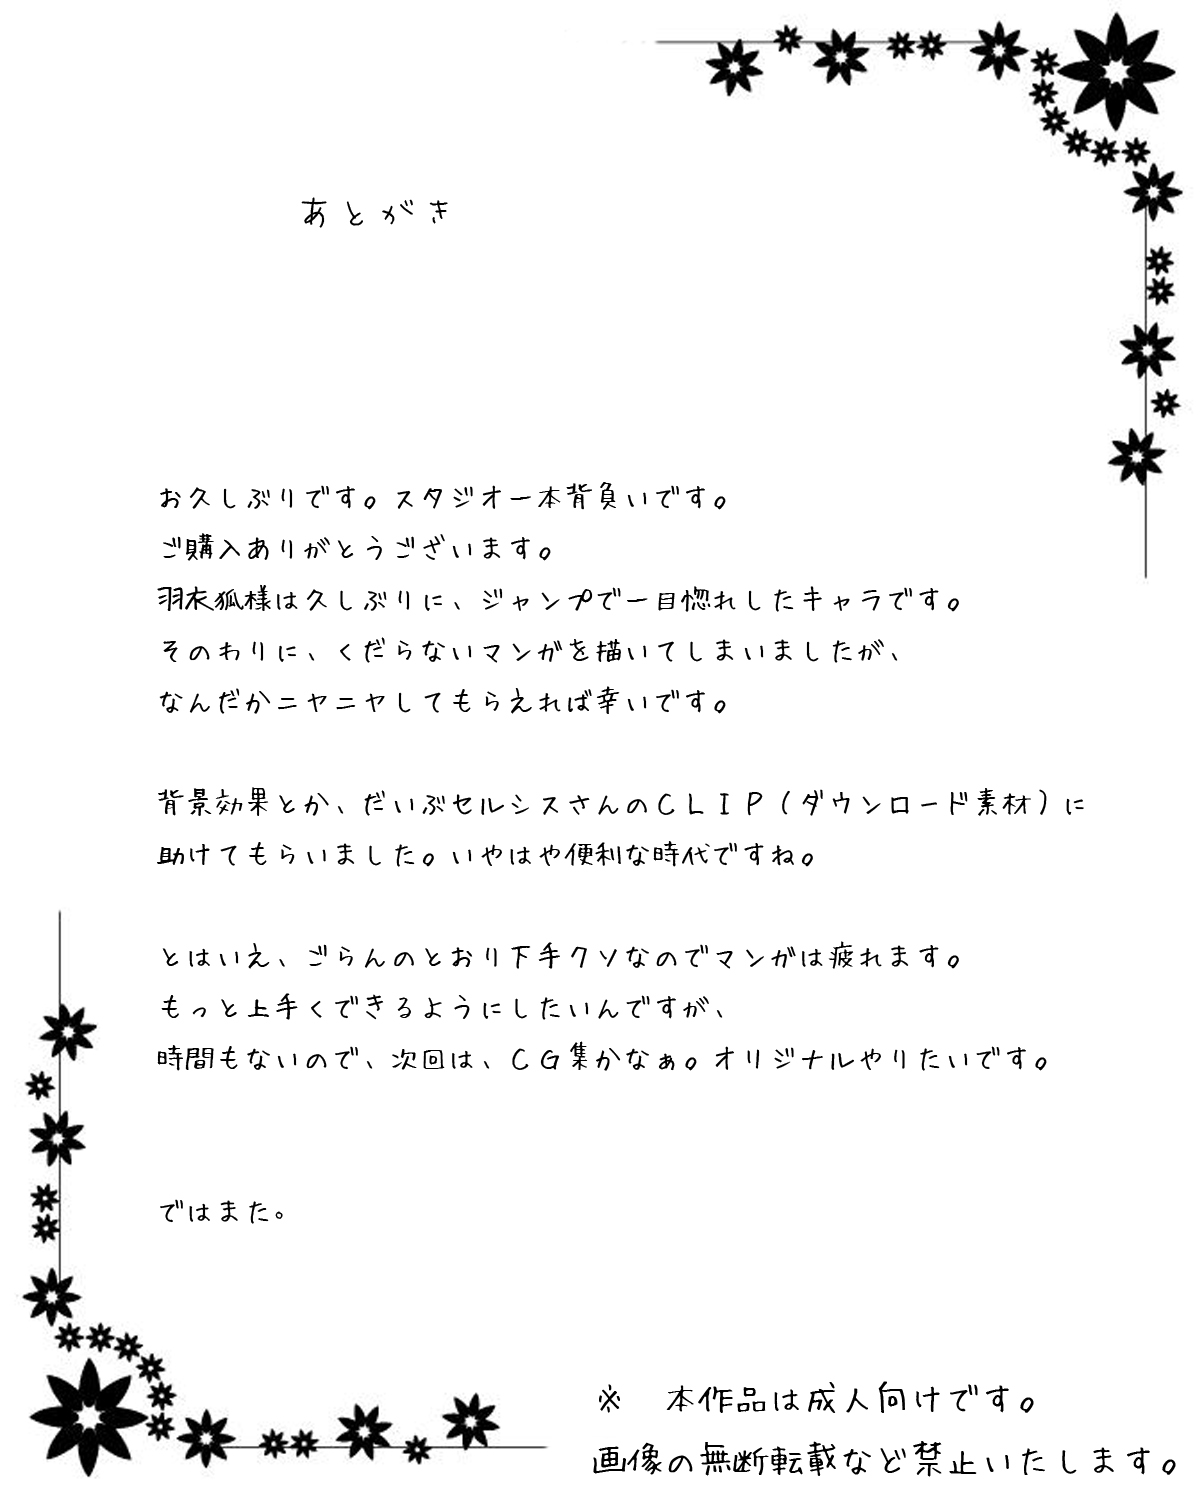 あとがき
お久しぶりです。スタジオ一本背負いです。
ご購入ありがとうございます。
羽衣狐様は久しぶりに、ジャンプで一目惚れしたキャラです。
そのわりに、くだらないマンガを描いてしまいましたが、
なんだかニヤニヤしてもらえれば幸いです。
背景効果とか、だいぶセルシスさんのＣＬＩＰ（ダウンロード素材）に
助けてもらいました。いやはや便利な時代ですね。
とはいえ、ごらんのとおり下手クソなのでマンガは疲れます。
もっと上手くできるようにしたいんですが、
時間もないので、次回は、ＣＧ集かなぁ。オリジナルやりたいです。
ではまた。
※　本作品は成人向けです。
画像の無断転載など禁止いたします。